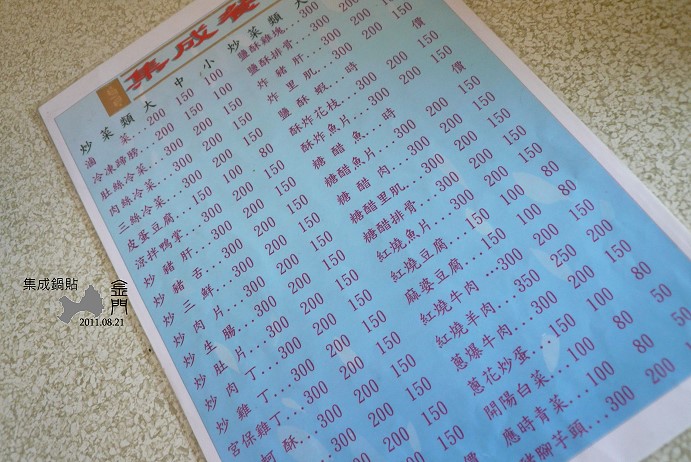 集成餐
炒菜類 大 中 小
滷菜...200 150 100
冷凍蹄膀...300 200 150
肚絲冷菜...300 200 150
肉絲冷菜...300 200 150
三絲冷菜...300 200 150
皮蛋豆腐...150 100 80
涼拌鴨掌...300 200 150
炒豬肝...300 200 150
炒豬舌...300 200 150
炒三鮮...300 200 150
炒肉片...300 200 150
炒生腸...300 200 150
炒肚片...300 200 150
炒肉丁...300 200 150
炒雞丁...300 200 150
宮保雞丁...300 200 150
炒菜類 大
鹽酥雞塊...300 200
鹽酥排骨...300 200 150
炸豬肝...300 200 150
炸里肌...300 200 150
鹽酥蝦...時 價
酥炸花枝...300 200 150
酥炸魚片...300 200 150
糖醋魚...時 價
糖醋魚片...300 200 150
糖醋肉...300 200 150
糖醋里肌...300 200 150
糖醋排骨...300 200 150
紅燒魚片...300 200 150
紅燒豆腐...150 100 80
麻婆豆腐...150 100 80
紅燒牛肉...300 200 150
紅燒羊肉...350 250 200
蔥爆牛肉...300 200 150
蔥花炒蛋...150 100 80
開陽白菜...100 80 50
應時青菜...100 80 50
芋頭...300 200
集成鍋貼
金門
2011.08.21